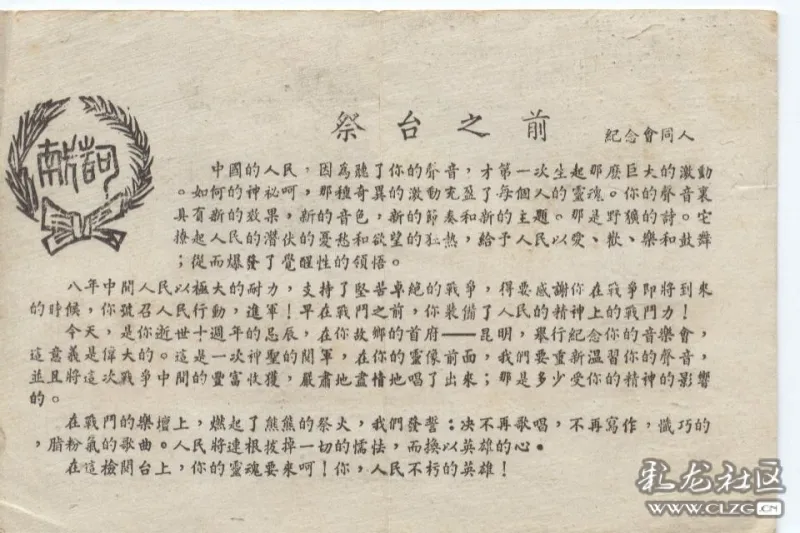 獻詞
祭台之前
紀念會同人
中國的人民，因為聽了你的聲音，才第一次生起那麼巨大的激動
。如何的神祕呵，那種奇異的激動充盈了每個人的靈魂。你的聲音裏
具有新的效果，新的音色，新的節奏和新的主題。那是野獷的詩。它
撩起人民的潛伏的憂愁和欲望的狂熱，給予人民以愛、歡、樂和鼓舞
；從而爆發了覺醒性的領悟。
八年中間人民以極大的耐力，支持了堅苦卓絕的戰爭，得要感謝你在戰爭即將到來
的時候，你號召人民行動，進軍！早在戰鬥之前，你裝備了人民的精神上的戰鬥力！
今天，是你逝世十週年的忌辰，在你故鄉的首府——昆明，舉行紀念你的音樂會，
這意義是偉大的。這是一次神聖的閱軍，在你的靈像前面，我們要重新溫習你的聲音，
並且將這次戰爭中間的豐富收獲，嚴肅地盡情地唱了出來；那是多少受你的精神的影響
的。
在戰鬥的樂壇上，燃起了熊熊的祭火，我們發誓：決不再歌唱，不再寫作，懺巧的
，脂粉氣的歌曲。人民將連根拔掉一切的懦怯，而換以英雄的心。
在這檢閱台上，你的靈魂要來呵！你，人民不朽的英雄！
彩龙社区
WWW.CLZG.CN